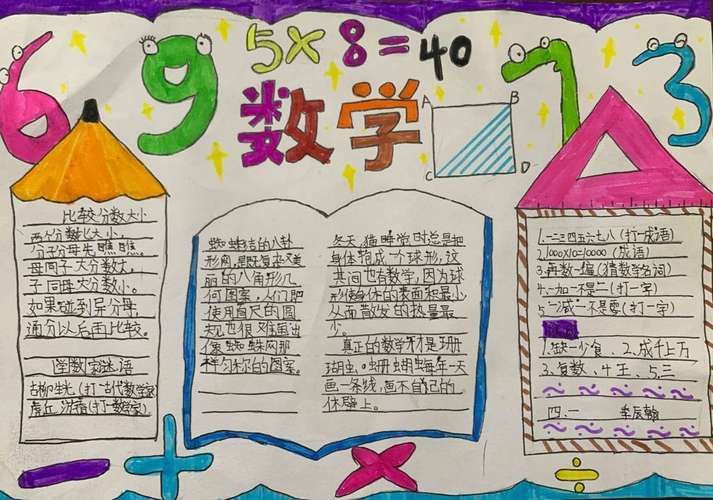 6
9
5×8=40
7
3
数学
A
B
C
D
比较分数大小
两个分数比大小，
分子分母先瞧瞧。
母同子大分数大，
子同母大分数小。
如果碰到异分母，
通分以后再比较。
学数家谜语
(打一古代数学家)
(打一数学家)
蜘蛛结的八卦
形网，是既复杂又美
丽的八角形几
何图案，人们即
使用直尺的圆
规也很难画出
像蜘蛛网那
样匀称的图案。
冬天，猫睡觉时总是把
身体抱成一个球形，这
其间也有数学，因为球
形使身体的表面和最小
从而散发的热量最
少。
真正的数学才是珊
瑚虫。珊蝴蝴每年一天
画一条线，画不自己的
休壁上。
1.一二三四五六七八(打一成语)
2.1000×10=10000(成语)
3.再数一遍(猜数学名词)
4.一加一不是二(打一字)
5.一减一不是零(打一字)
1.缺一少食、2.成千上万
3.复数、4.王、5.三
四、一